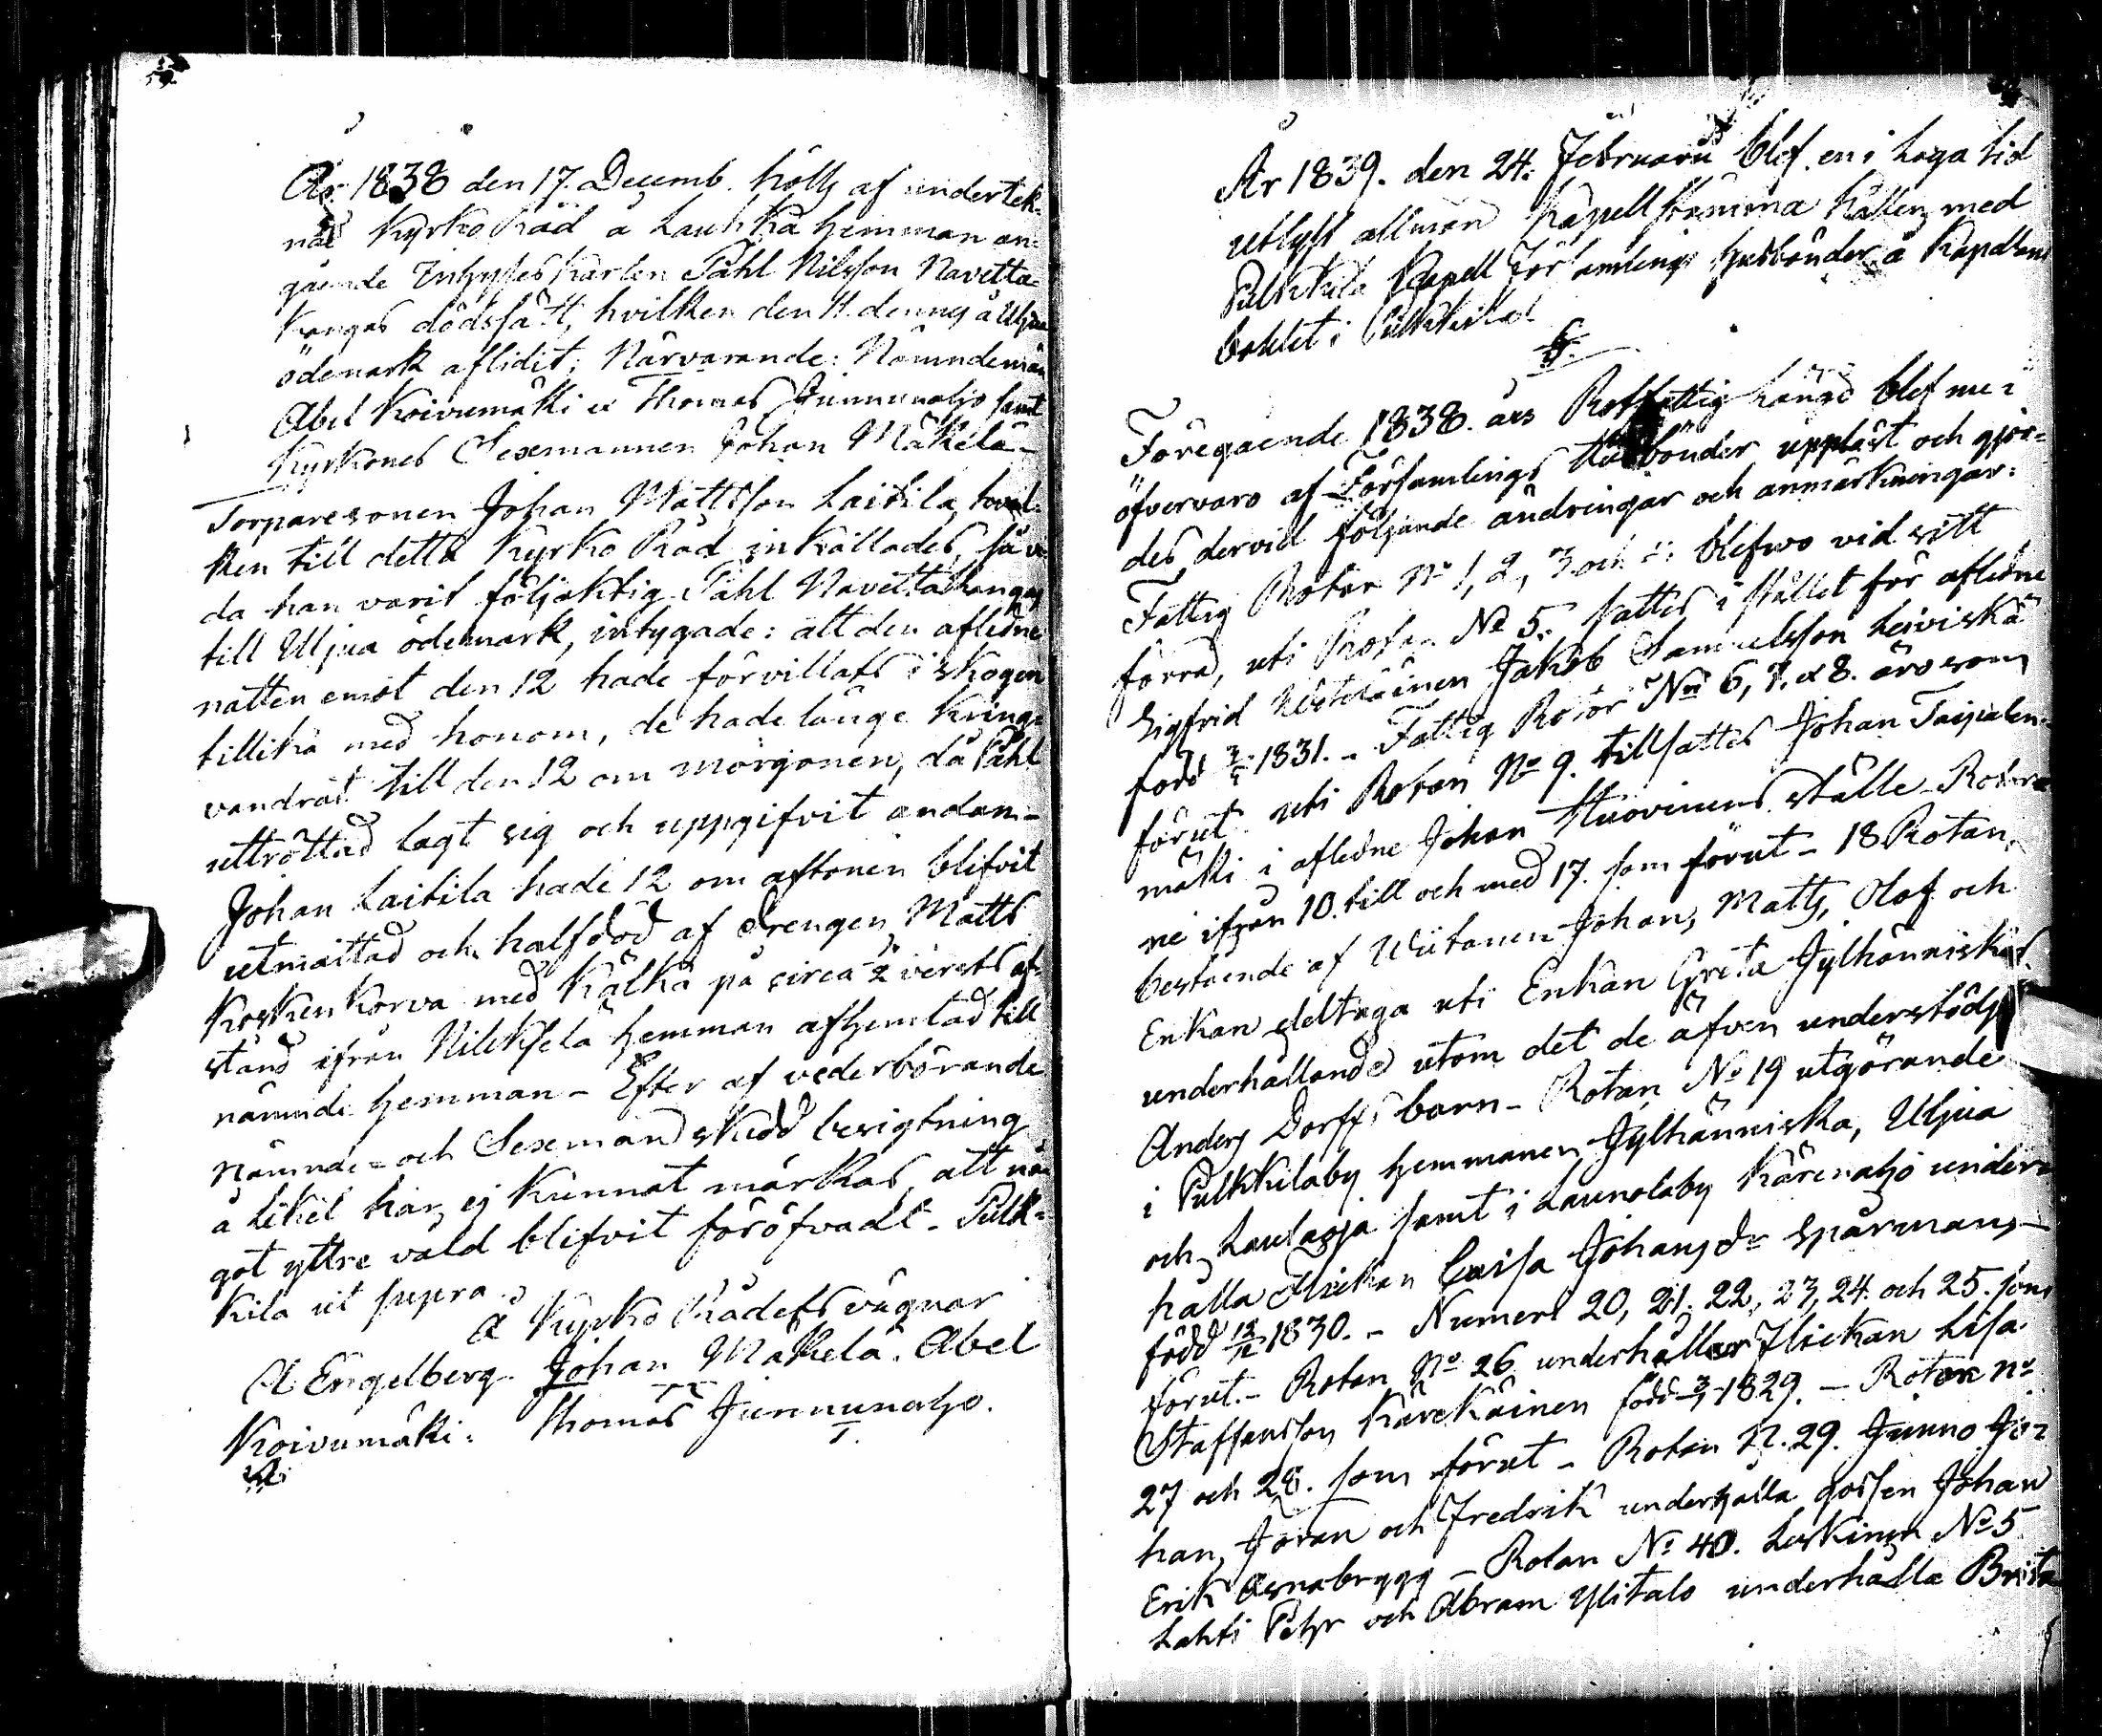 År 1838 den 17. Decemb. hölts af undertek-
nad Kyrko Råd å Laukka hemman an-
gående Inhyses Karlen Påhl Nilsson Navetta-
kangas dödssätt, hvilken den 11. dennes å Uljua
ödemark aflidit; Närvarande: Nämndemän
Abel Koivumäki & Thomas Junnunaho samt
Kyrkones Sexmannen Johan Mäkelä -
Torparesonen Johan Mattsson Laitila, hvil-
ken till detta Kyrko Råd inkallades, så vi-
da han varit följaktig Påhl Navettakangas
till Uljua ödemark, intygade: att den aflidne
natten emot den 12 hade förvillats i skogen
tillika med honom, de hade länge kring-
vandrat till den 12 om morgonen, då Påhl
uttröttad lagt sig och uppgifvit andan -
Johan Laitila hade 12 om aftonen blifvit
utmattad och halfdöd af drengen Matts
Koskenkorva med kälka på circa 2 versts af-
stånd ifrån Nilekselä hemman afhemtad till
nämnde hemman - Efter af vederbörande
Nämnde- och Sexmän skedd besigtning
å liket har ej kunnat märkas, att nå-
got yttre våld blifvit föröfvadt. Pulk-
kila ut supra.
å Kyrko Rådets vägnar
A Engelberg. Johan Mäkelä. Abel
Koivumäki. Thomas Junnunaho.
År 1839. den 24. Februarii blef en i laga tid
utlyst allmän Kapell stämma hållen med
Pulkkila Kapell Församlings Husbönder å Kapellans
bohlet i Pulkkila
§.
Föregående 1838. års Rotfattig längd blef nu i
öfvervaro af Församlings Husbönder uppläst och gjor-
des dervid följande ändringar och anmärkningar:
Fattig Rotar No 1, 2, 3 och 4: blefwo vid sitt
förra, uti Rotan No 5. sattes i stället för aflidne
Sigfrid Jakob Samuelsson Leiviskä
född 1831. - Fattig Rotor No 6, 7. & 8. äro som
förut uti Rotan No 9. tillsattes Johan Taipalen-
mäki i aflidne Johan Huovinens ställe - Rotar-
ne ifrån 10. till och med 17. som förut - 18 Rotan,
bestående af Wiitanen Johan, Matts, Olof och
Enkan deltaga uti Enkan Greta Jylhänniskäs
underhållande utom det de äfven understödja
Anders Dorffs barn - Rotan No 19 utgörande
i Pulkkilaby hemmanen Jylhänniska, Uljua
och Laulaja samt i Launolaby Kärenaho under-
hålla Flickan Caisa Johansdr Sparmans -
född 1830. - Numern 20, 21. 22, 23, 24. och 25. som
förut. - Rotan No 26 underhåller Flickan Lisa
Staffansson Kärekäinen född 1829. - Rotan No
27 och 28. som förut - Rotan N. 29. Junno Jo-
han, Jöran och Fredrik underhålla gossen Johan
Erik Asnabrygg - Rotan No 40. Leskinen No 5
Lahti Pehr och Abram Ylitalo underhålla Brita